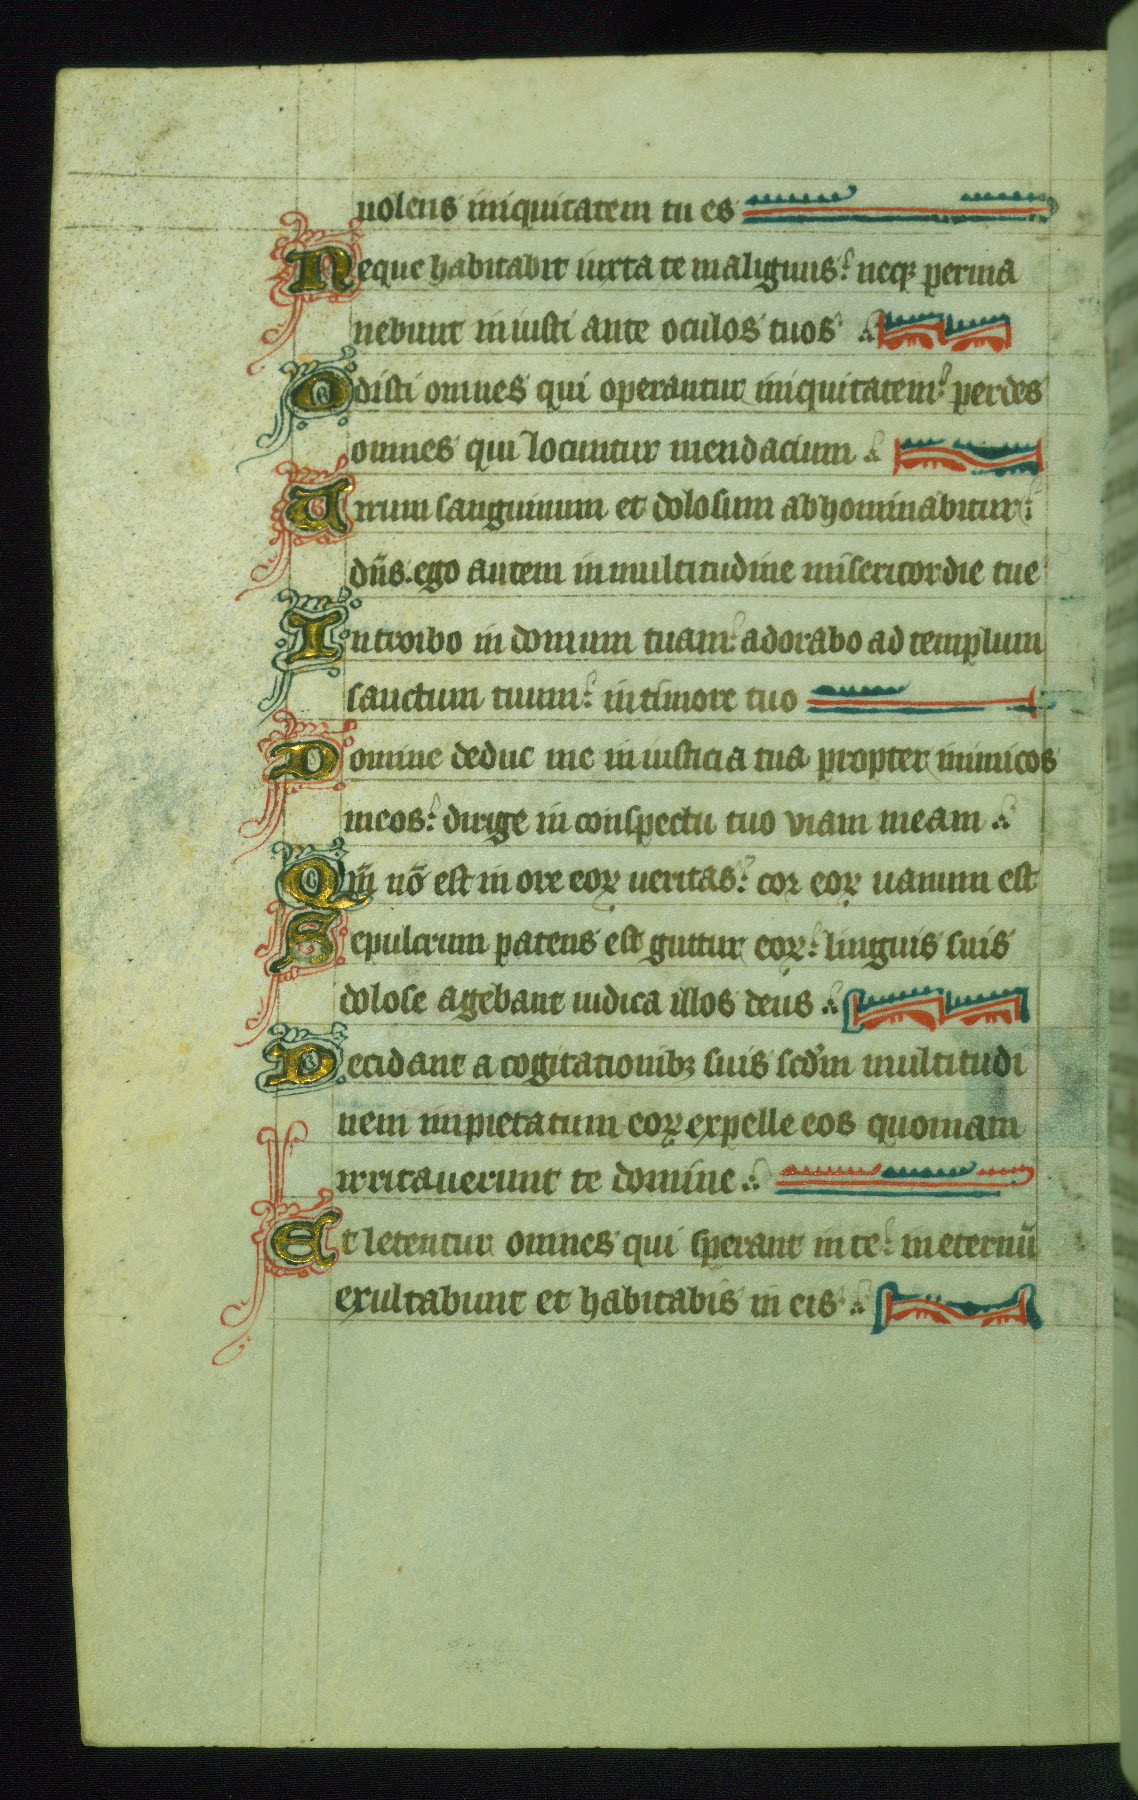 uolens iniquitatem tu es
Neque habitabit iuxta te malignus: neqꝫ perma
nebunt iniusti ante oculos tuos
Odisti omnes qui operantur iniquitatem: perdes
omnes qui locuntur mendacium
Uirum sanguinum et dolosum abhominabitur:
dn̄s. ego autem in multitudine misericordie tue
Introibo in domum tuam: adorabo ad templum
sanctum tuum: in timore tuo
Domine deduc me in iusticia tua propter inimicos
meos: dirige in conspectu tuo viam meam
Qm̄ nō est in ore eoꝝ ueritas: cor eoꝝ uanum est
Sepulcrum patens est guttur eoꝝ: linguis suis
dolose agebant iudica illos deus
Decidant a cogitationibꝫ suis scd̄m multitudi
nem impietatum eoꝝ expelle eos quoniam
irritauerunt te domine
Et letentur omnes qui sperant in te: in eternū
exultabunt et habitabis in eis